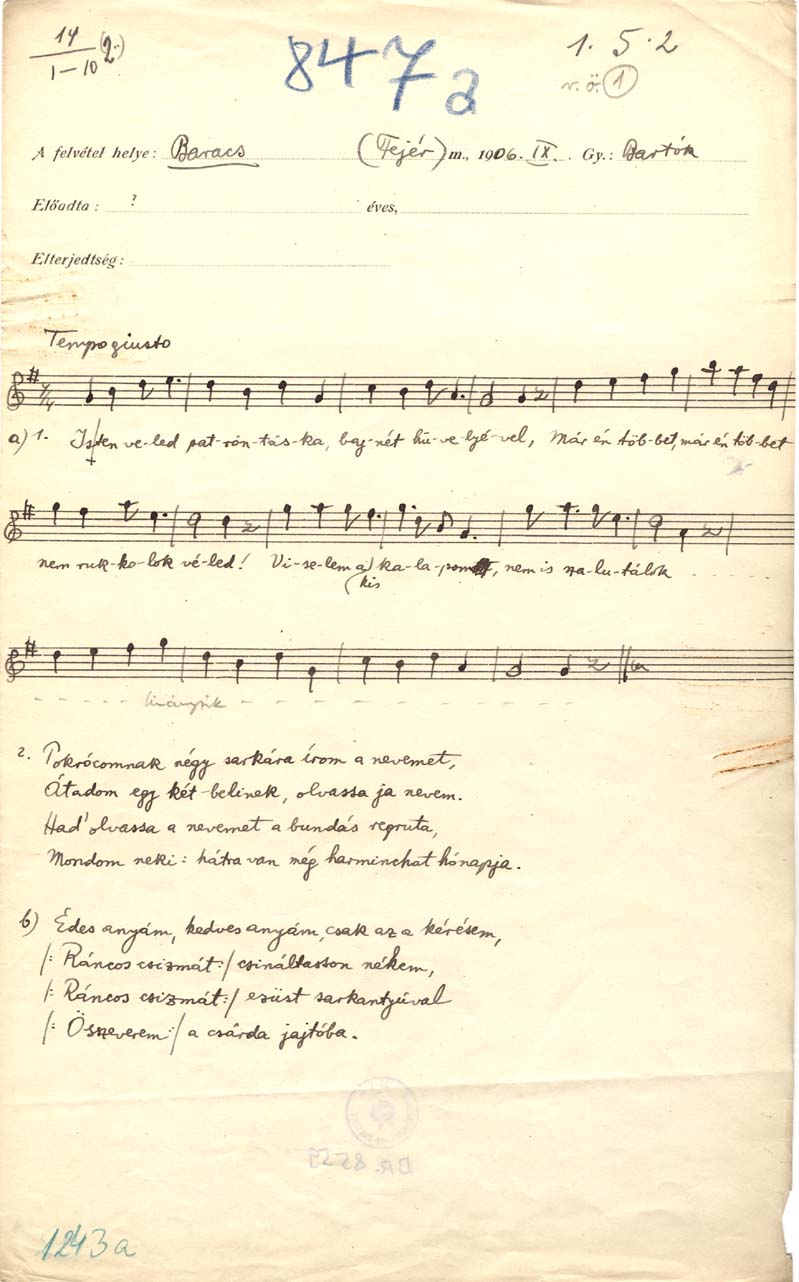 14 (2.)
1-10
847a
1. 5. 2
v.ö. 1
A felvétel helye: Baracs (Fejér) m., 1906. IX. Gy.: Bartók
Előadta: ? éves,
Elterjedtség:
Tempo giusto
a) 1. Isten ve-led pat-rón-tás-ka, baj-nét hü-ve-lyé-vel, Már én töb-bet, már én töb-bet
nem ruk-ko-lok vé-led! Vi-se-lem a ka-la-pom, nem is sza-lu-tálok
kis
hiányzik
2. Pokrócomnak négy sarkára írom a nevemet,
Átadom egy két-belinek, olvassa ja nevem.
Had' olvassa a nevemet a bundás regruta,
Mondom neki: hátra van még harminchat hónapja.
b) Édes anyám, kedves anyám, csak az a kérésem,
/: Ráncos csizmát :/ csináltasson nékem,
/: Ráncos csizmát :/ ezüst sarkantyúval
/: Öszeverem :/ a csárda jajtóba.
1243a